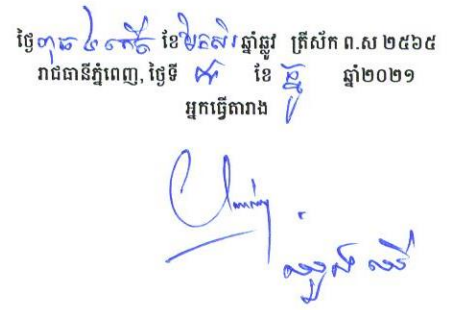 ថ្ងៃពុធ ៤ កើត ខែមិគសិរ ឆ្នាំឆ្លូវ ត្រីស័ក ព.ស ២៥៦៥
រាជធានីភ្នំពេញ, ថ្ងៃទី ០៨ ខែ ធ្នូ ឆ្នាំ២០២១
អ្នកធ្វើតារាង